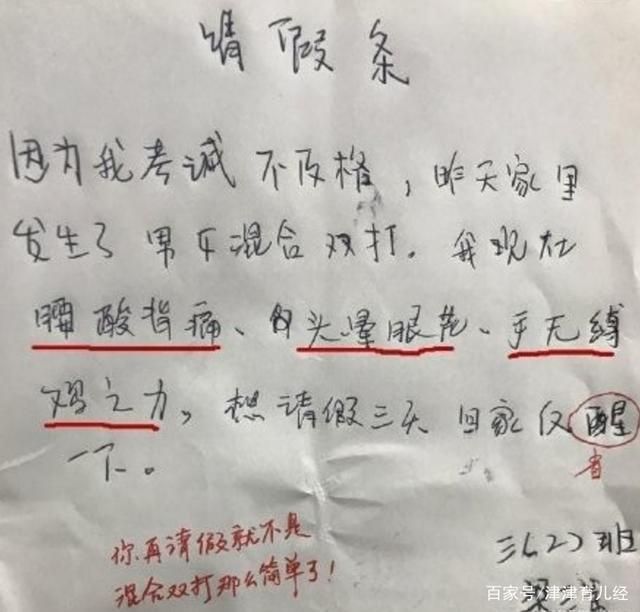 请假条
因为我考试不及格，昨天家里
发生了男女混合双打。我现在
腰酸背痛、头晕眼花、手无缚
鸡之力，想请假三天 回家反醒
省
一下。
你再请假就不是
混合双打那么简单了！
三(2)班
百家号/津津育儿经